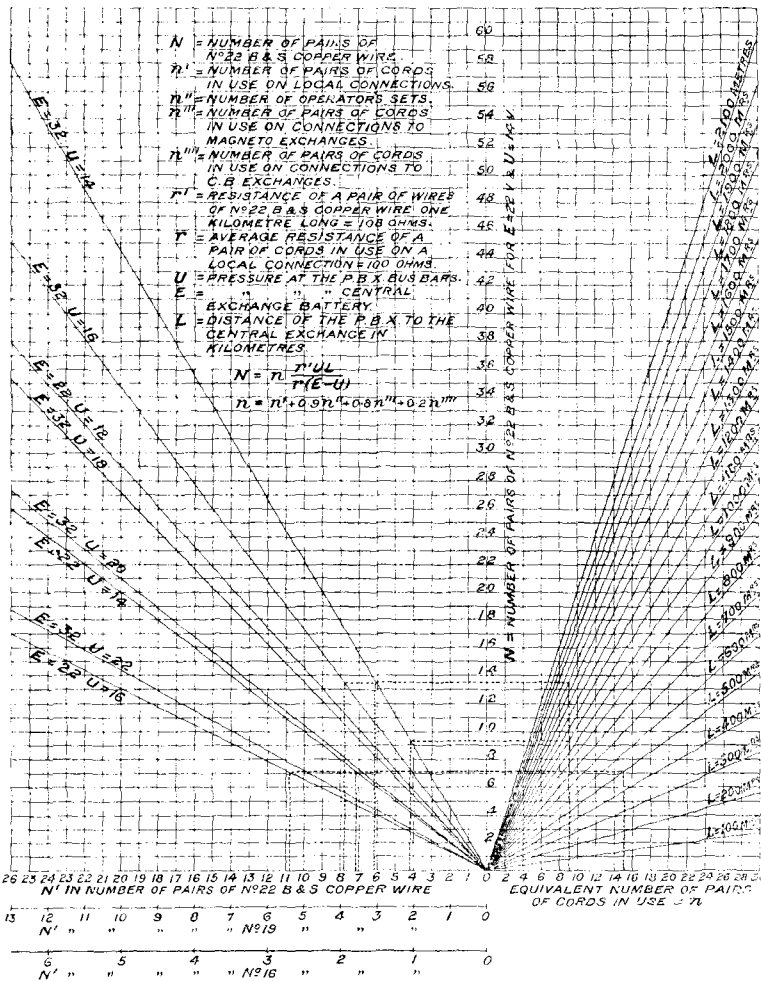 N = NUMBER OF PAIRS OF
Nº22 B & S COPPER WIRE
n' = NUMBER OF PAIRS OF CORDS
IN USE ON LOCAL CONNECTIONS.
n'' = NUMBER OF OPERATORS SETS.
n''' = NUMBER OF PAIRS OF CORDS
IN USE ON CONNECTIONS TO
MAGNETO EXCHANGES.
n'''' = NUMBER OF PAIRS OF CORDS
IN USE ON CONNECTIONS TO
C.B EXCHANGES.
r' = RESISTANCE OF A PAIR OF WIRES
OF Nº22 B & S COPPER WIRE ONE
KILOMETRE LONG = 108 OHMS.
r = AVERAGE RESISTANCE OF A
PAIR OF CORDS IN USE ON A
LOCAL CONNECTION = 100 OHMS.
U = PRESSURE AT THE P.B X BUS BARS.
E = " " CENTRAL
EXCHANGE BATTERY
L = DISTANCE OF THE P.B X TO THE
CENTRAL EXCHANGE IN
KILOMETRES
N = n r'UL / r(E-U)
n = n' + 0.9n'' + 0.8n''' + 0.2n''''
E=32, U=14
E=32 U=16
E=22, U=12
E=32, U=18
E=32, U=20
E=22 U=14
E=32, U=22
E=22 U=16
60
58
56
54
52
50
48
46
44
42
40
38
36
34
32
30
28
26
24
22
20
18
16
14
12
10
8
6
4
2
N = NUMBER OF PAIRS OF Nº22 B & S COPPER WIRE FOR E=22 V & U=14 V
L=2100 METRES
L=2000 MRS
L=1900 MRS
L=1800 MRS
L=1700 MRS
L=1600 MRS
L=1500 MRS
L=1400 MRS
L=1300 MRS
L=1200 MRS
L=1100 MRS
L=1000 MRS
L=900 MRS
L=800 MRS
L=700 MRS
L=600 MRS
L=500 MRS
L=400 MRS
L=300 MRS
L=200 MRS
L=100 MRS
26 25 24 23 22 21 20 19 18 17 16 15 14 13 12 11 10 9 8 7 6 5 4 3 2 1 0 2 4 6 8 10 12 14 16 18 20 22 24 26 28 30
N' IN NUMBER OF PAIRS OF Nº22 B & S COPPER WIRE
EQUIVALENT NUMBER OF PAIRS
OF CORDS IN USE = n
13 12 11 10 9 8 7 6 5 4 3 2 1 0
N' " " " " " Nº19 " " "
6 5 4 3 2 1 0
N' " " " " " Nº16 " " "